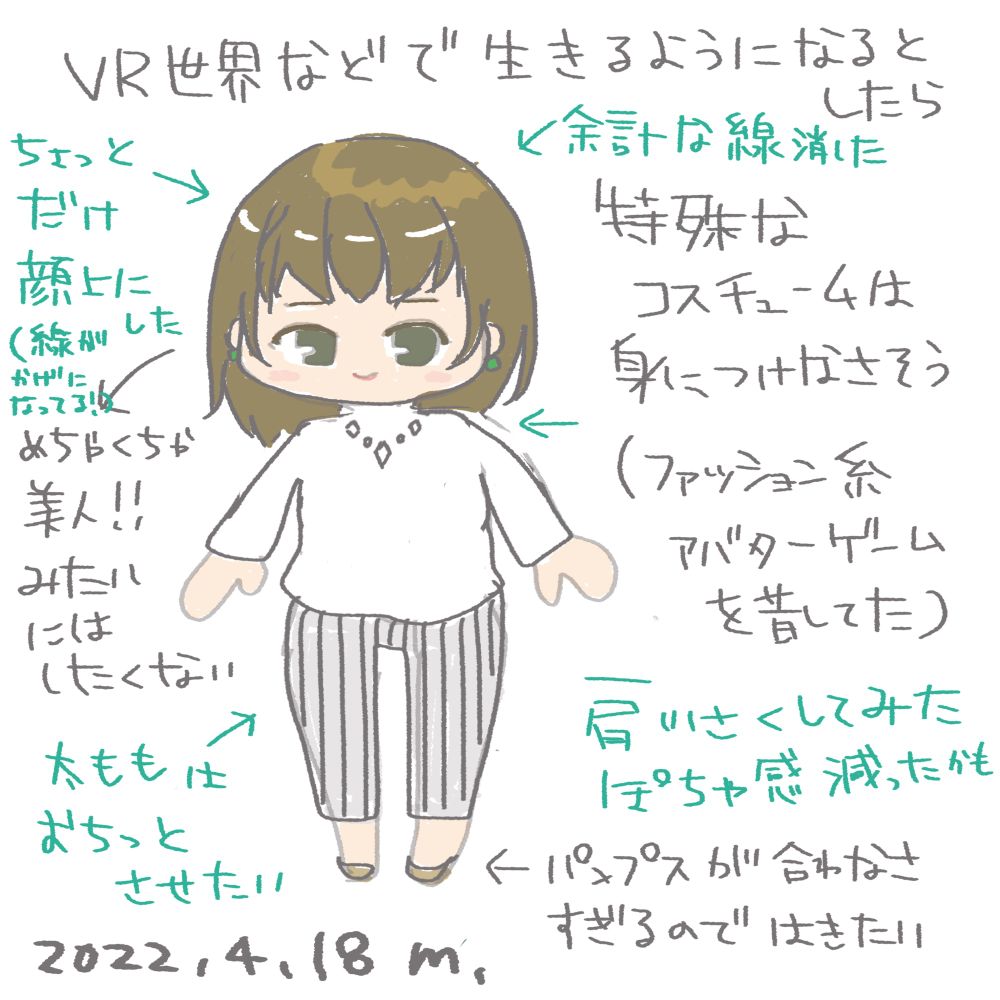 VR世界などで生きるようになると
したら
ちょっと
だけ
顔上に
した
(線が
かげに
なってる!)
めちゃくちゃ
美人!!
みたい
には
したくない
太ももは
むちっと
させたい
↙余計な線消した
特殊な
コスチュームは
身につけなさそう
(ファッション系
アバターゲーム
を昔してた)
肩小さくしてみた
ぽちゃ感減ったかも
←パンプスが合わなさ
すぎるのではきたい
2022.4.18 m.